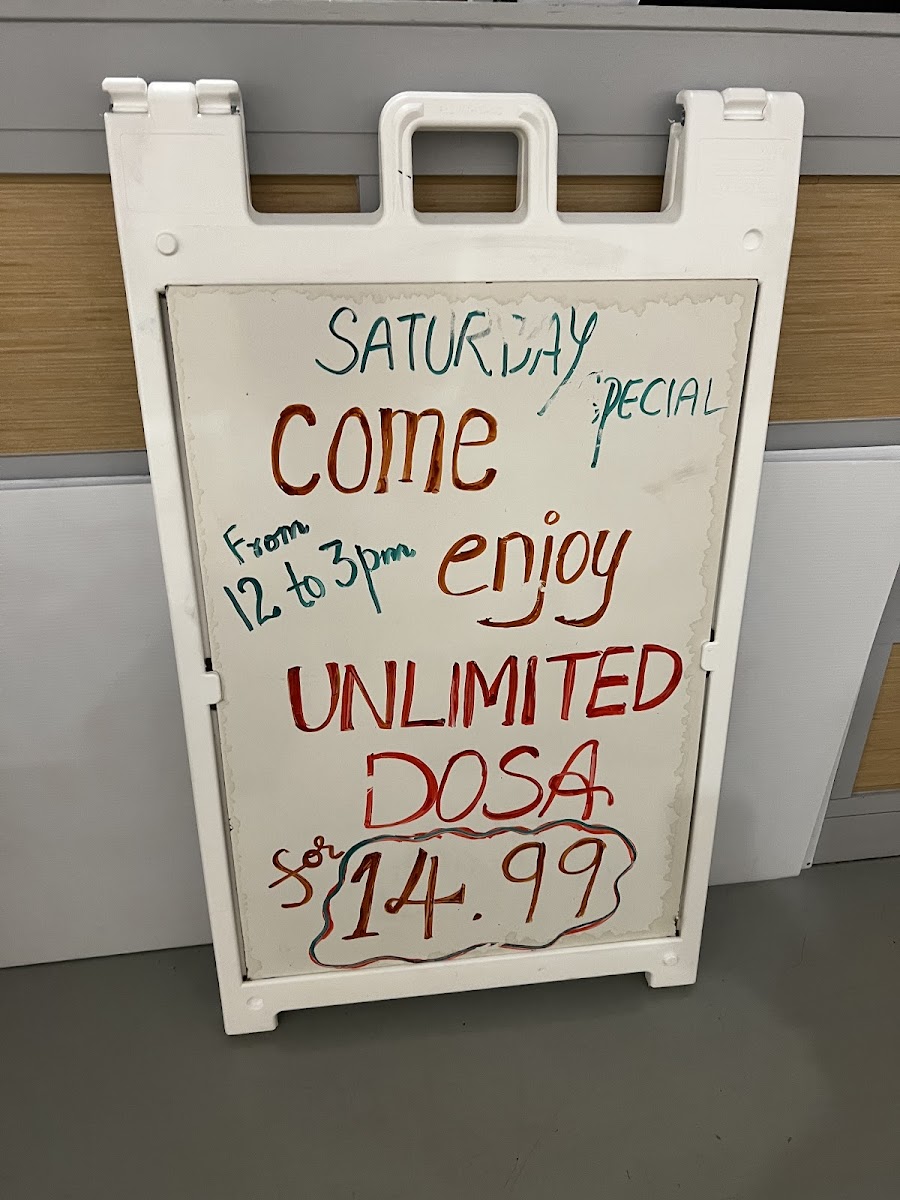 SATURDAY
SPECIAL
come
From
12 to 3pm
enjoy
UNLIMITED
DOSA
for 14.99